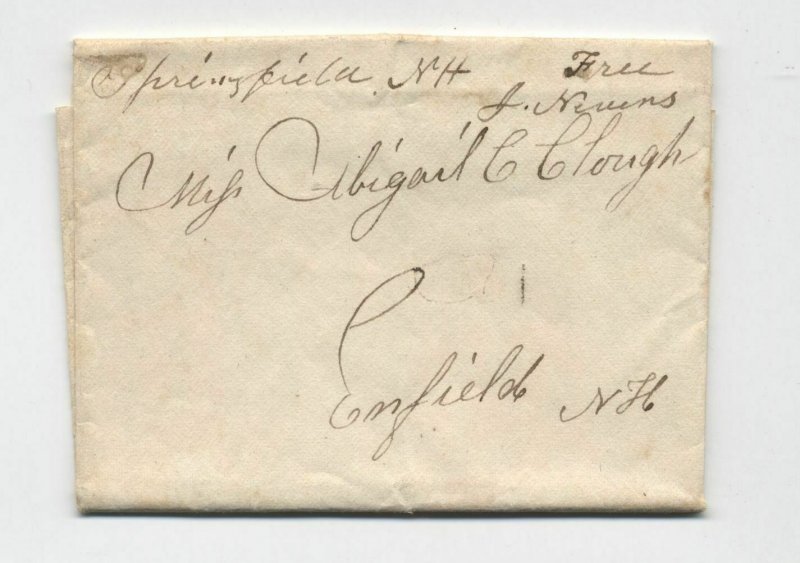 Springfield NH Free
J. Nevens
Miss Abigail C Clough
Enfield NH